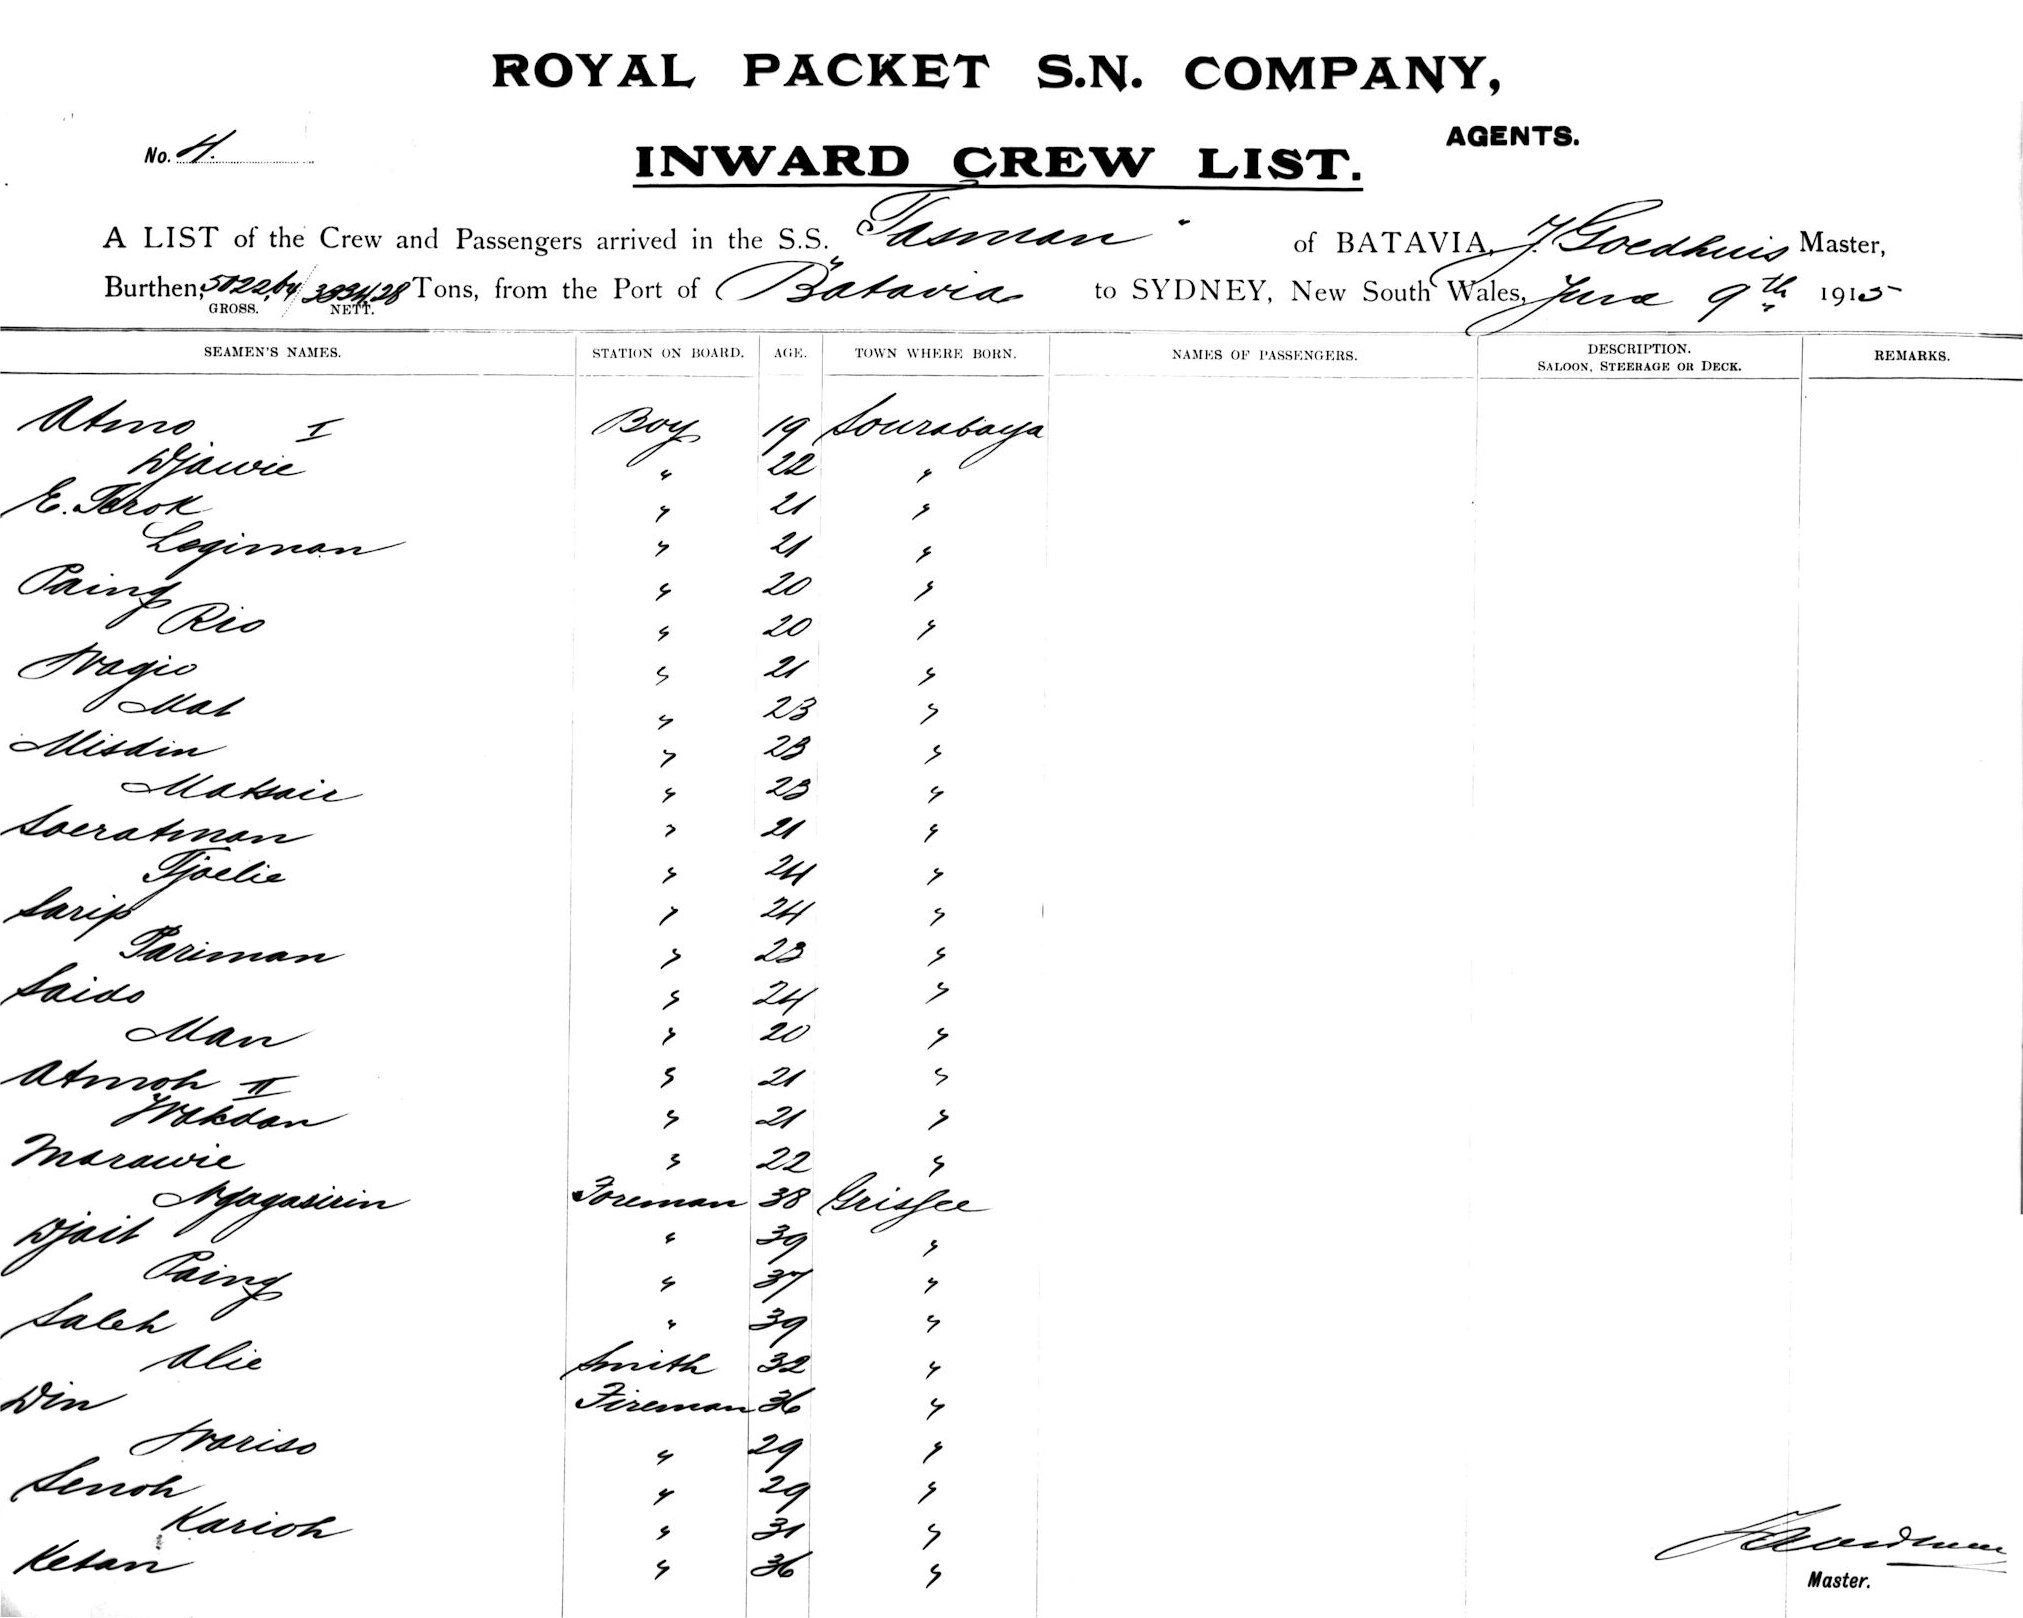 ROYAL PACKET S.N. COMPANY,
AGENTS.
No. 4.
INWARD CREW LIST.
A LIST of the Crew and Passengers arrived in the S.S. "Tasman" of BATAVIA, J. Goedhuis Master,
Burthen, 5022,64 GROSS. 3334,28 NETT. Tons, from the Port of Batavia to SYDNEY, New South Wales, June 9th 1915
SEAMEN'S NAMES. STATION ON BOARD. AGE. TOWN WHERE BORN. NAMES OF PASSENGERS. DESCRIPTION. SALOON, STEERAGE OR DECK. REMARKS.
Atmo I Boy 19 Sourabaya
Djawie " 22 "
E. Terok " 21 "
Legiman " 21 "
Paing " 20 "
Rio " 20 "
Wagio " 21 "
Mat " 23 "
Misdin " 23 "
Matsair " 23 "
Soeratman " 21 "
Tjoelie " 24 "
Sarip " 24 "
Pariman " 23 "
Saido " 24 "
Man " 20 "
Atmoh II " 21 "
Wakdan " 21 "
Marawie " 22 "
Foreman 38 Grissee
Djait " 39 "
Paing " 37 "
Saleh " 39 "
Alie Smith 32 "
Din Fireman 36 "
Wariso " 29 "
Senoh " 29 "
Karioh " 31 "
Ketan " 36 "
Master.